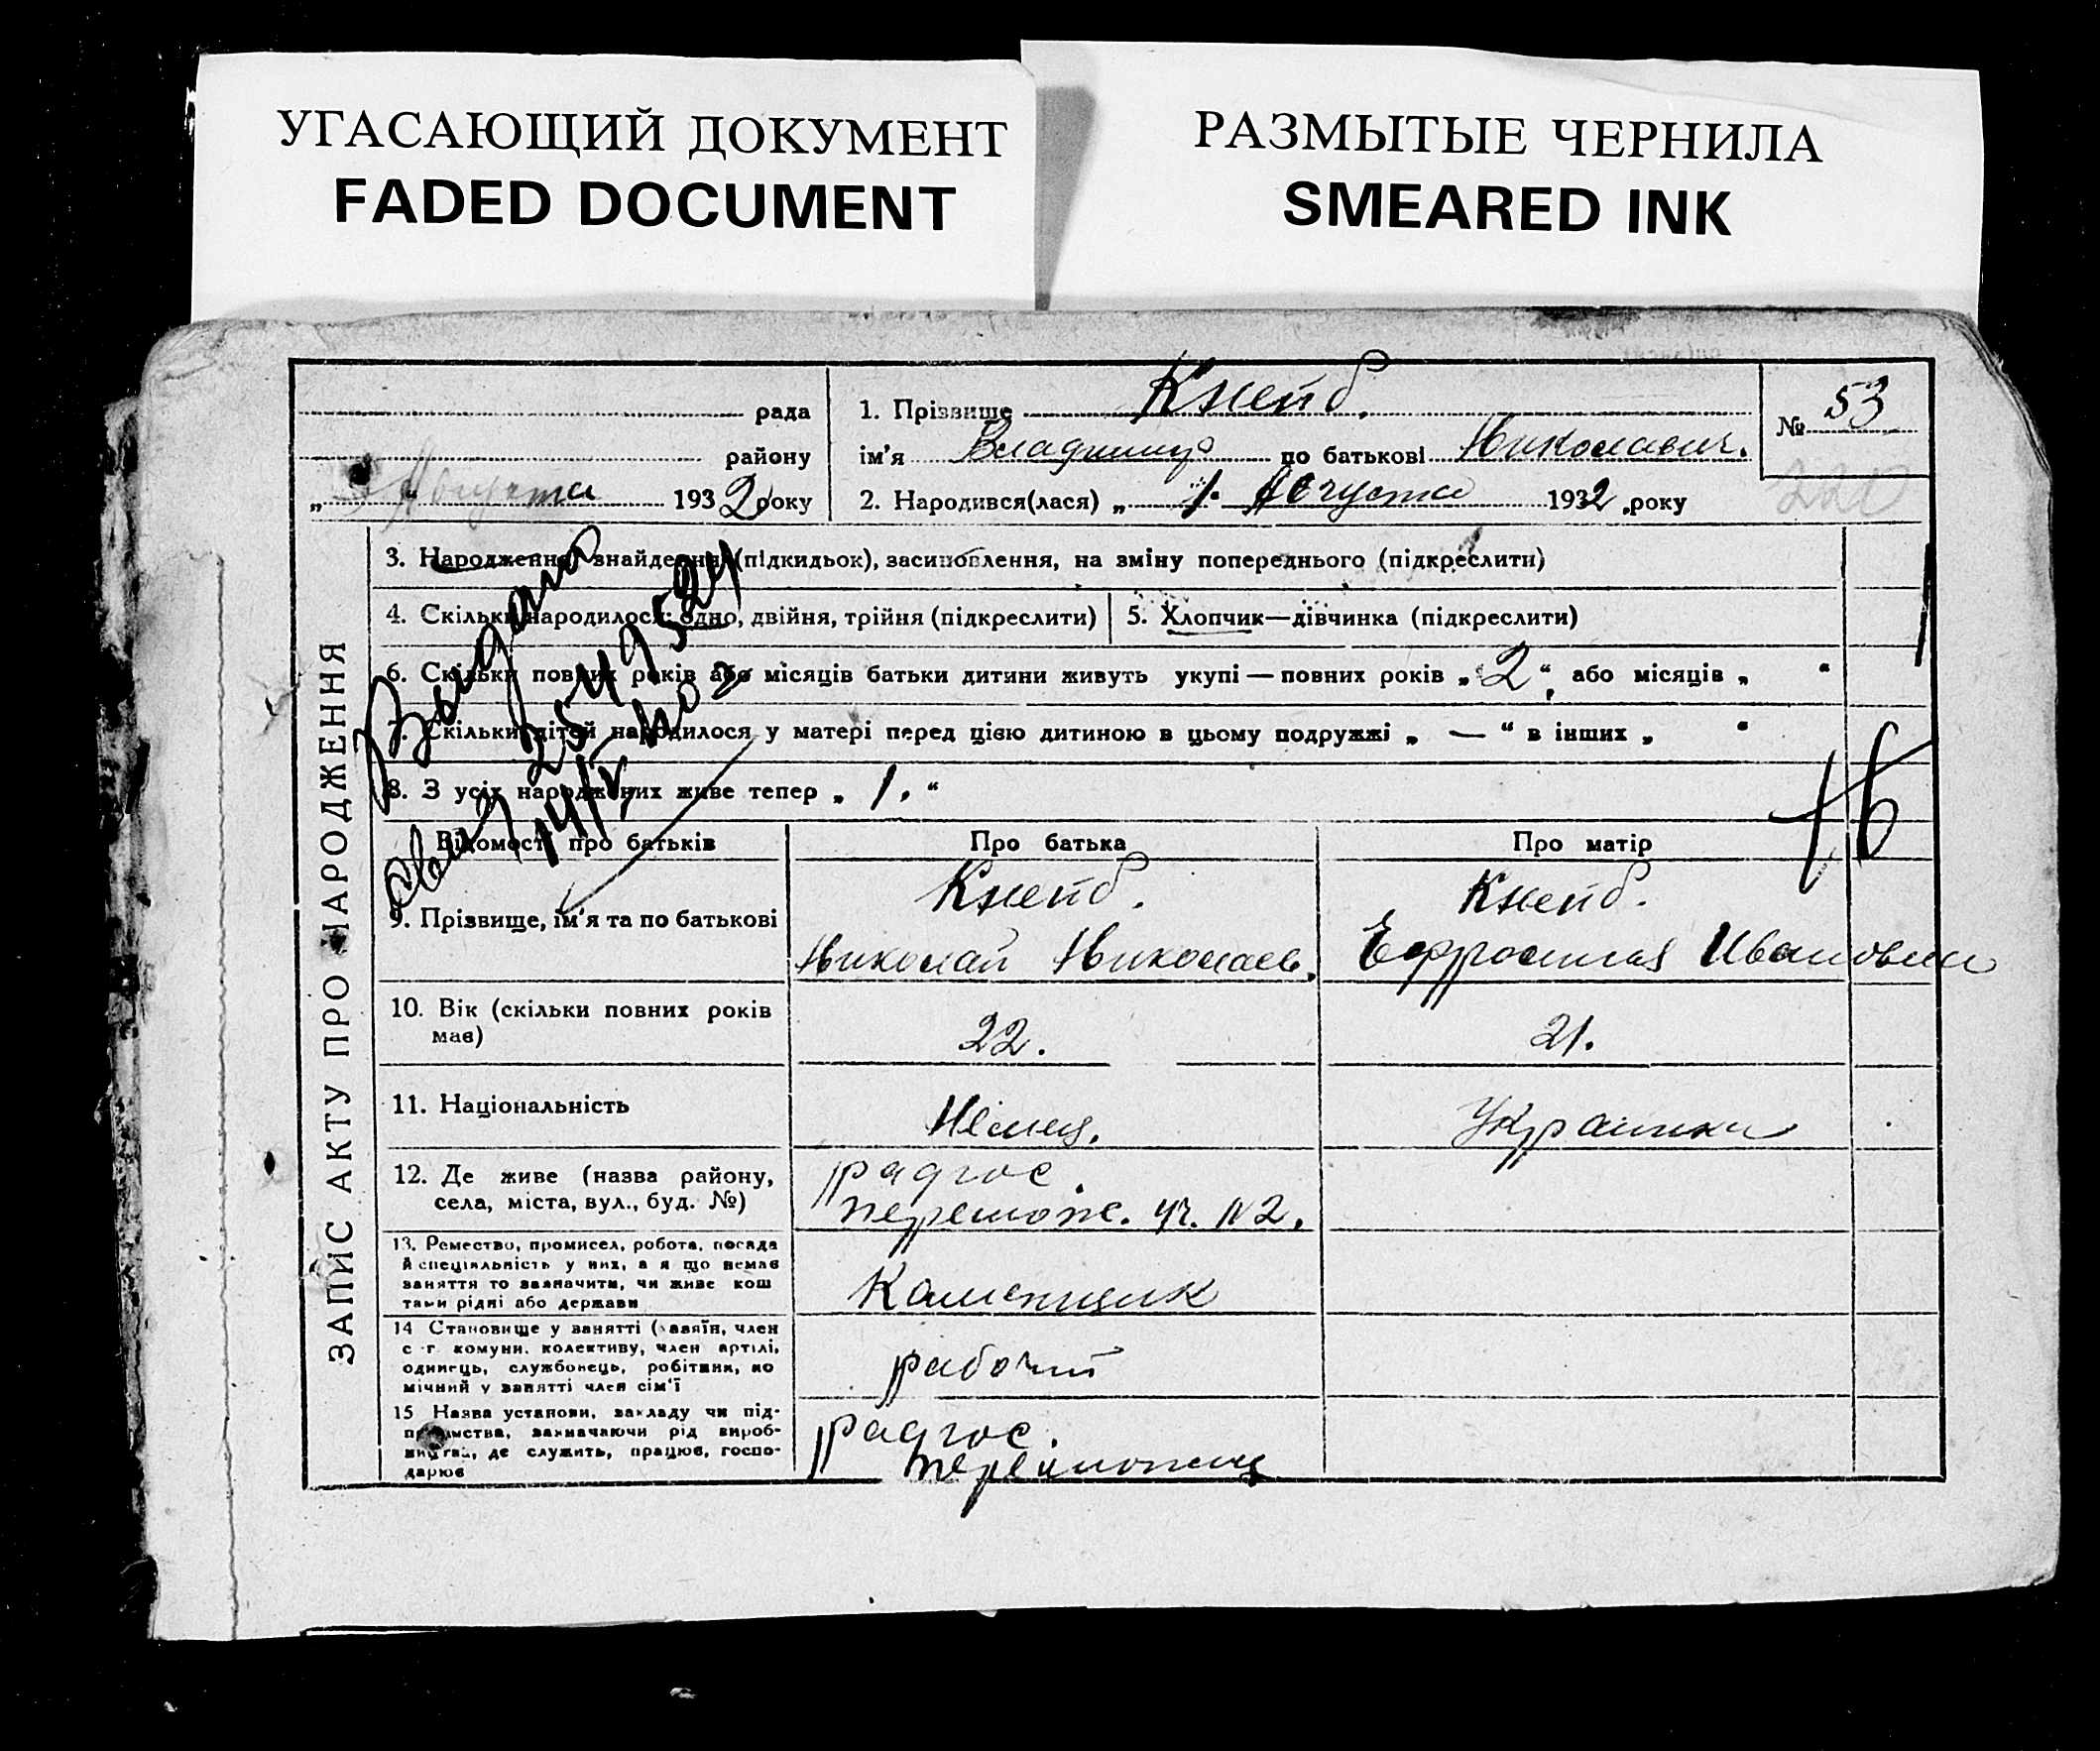 УГАСАЮЩИЙ ДОКУМЕНТ
FADED DOCUMENT
РАЗМЫТЫЕ ЧЕРНИЛА
SMEARED INK
рада
району
„ Августа 1932 року
1. Прізвище Кнейб.
ім'я Владимир по батькові Николаевич.
2. Народився(лася) „ 1. Августа 1932 року
№ 53
ЗАПИС АКТУ ПРО НАРОДЖЕННЯ
3. Народження, знайдення (підкидьок), засиновлення, на зміну попереднього (підкреслити)
4. Скільки народилося: одно, двійня, трійня (підкреслити)
5. Хлопчик—дівчинка (підкреслити)
6. Скільки повних років або місяців батьки дитини живуть укупі — повних років „ 2 “, або місяців „ “
7. Скільки дітей народилося у матері перед цією дитиною в цьому подружжі „ — “ в інших „ “
8. З усіх народжених живе тепер „ 1. “
Выдано
16
Відомості про батьків
Про батька
Про матір
9. Прізвище, ім'я та по батькові
Кнейб.
Николай Николаев.
Кнейб.
Ефросиния Ивановна
10. Вік (скільки повних років
має)
22.
21.
11. Національність
Німец.
Украинка
12. Де живе (назва району,
села, міста, вул., буд. №)
радгос.
перемож. уч. №2.
13. Ремество, промисел, робота, посада
й спеціяльність у них, а я що немає
заняття то зазначити, чи живе кош
тами рідні або держави
Каменщик
14 Становище у занятті (хазяїн, член
с.-г. комуни. колективу, член артілі,
одинець, службовець, робітник, по
мічний у занятті член сім'ї
рабочий
15 Назва установи, закладу чи під-
приємства, зазначаючи рід вироб-
ництва, де служить, працює, госпо-
дарює
радгос.
Переможец